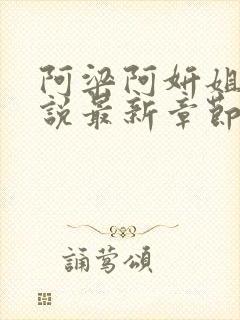 阿梁阿妍姐
說最新章節
誦鶯頌